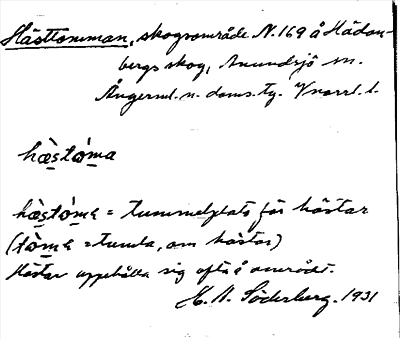 Hästtomman, skogsområde N. 169 å Hädan-
bergs skog, Anundsjö sn.
Ångerml. n. doms. tg. V.norrl. l.
hæ̀stòma
hæ̀stòma = tummelplats för hästar
(tòma = tumla, om hästar)
Hästar uppehålla sig ofta å området.
H. Söderberg. 1931